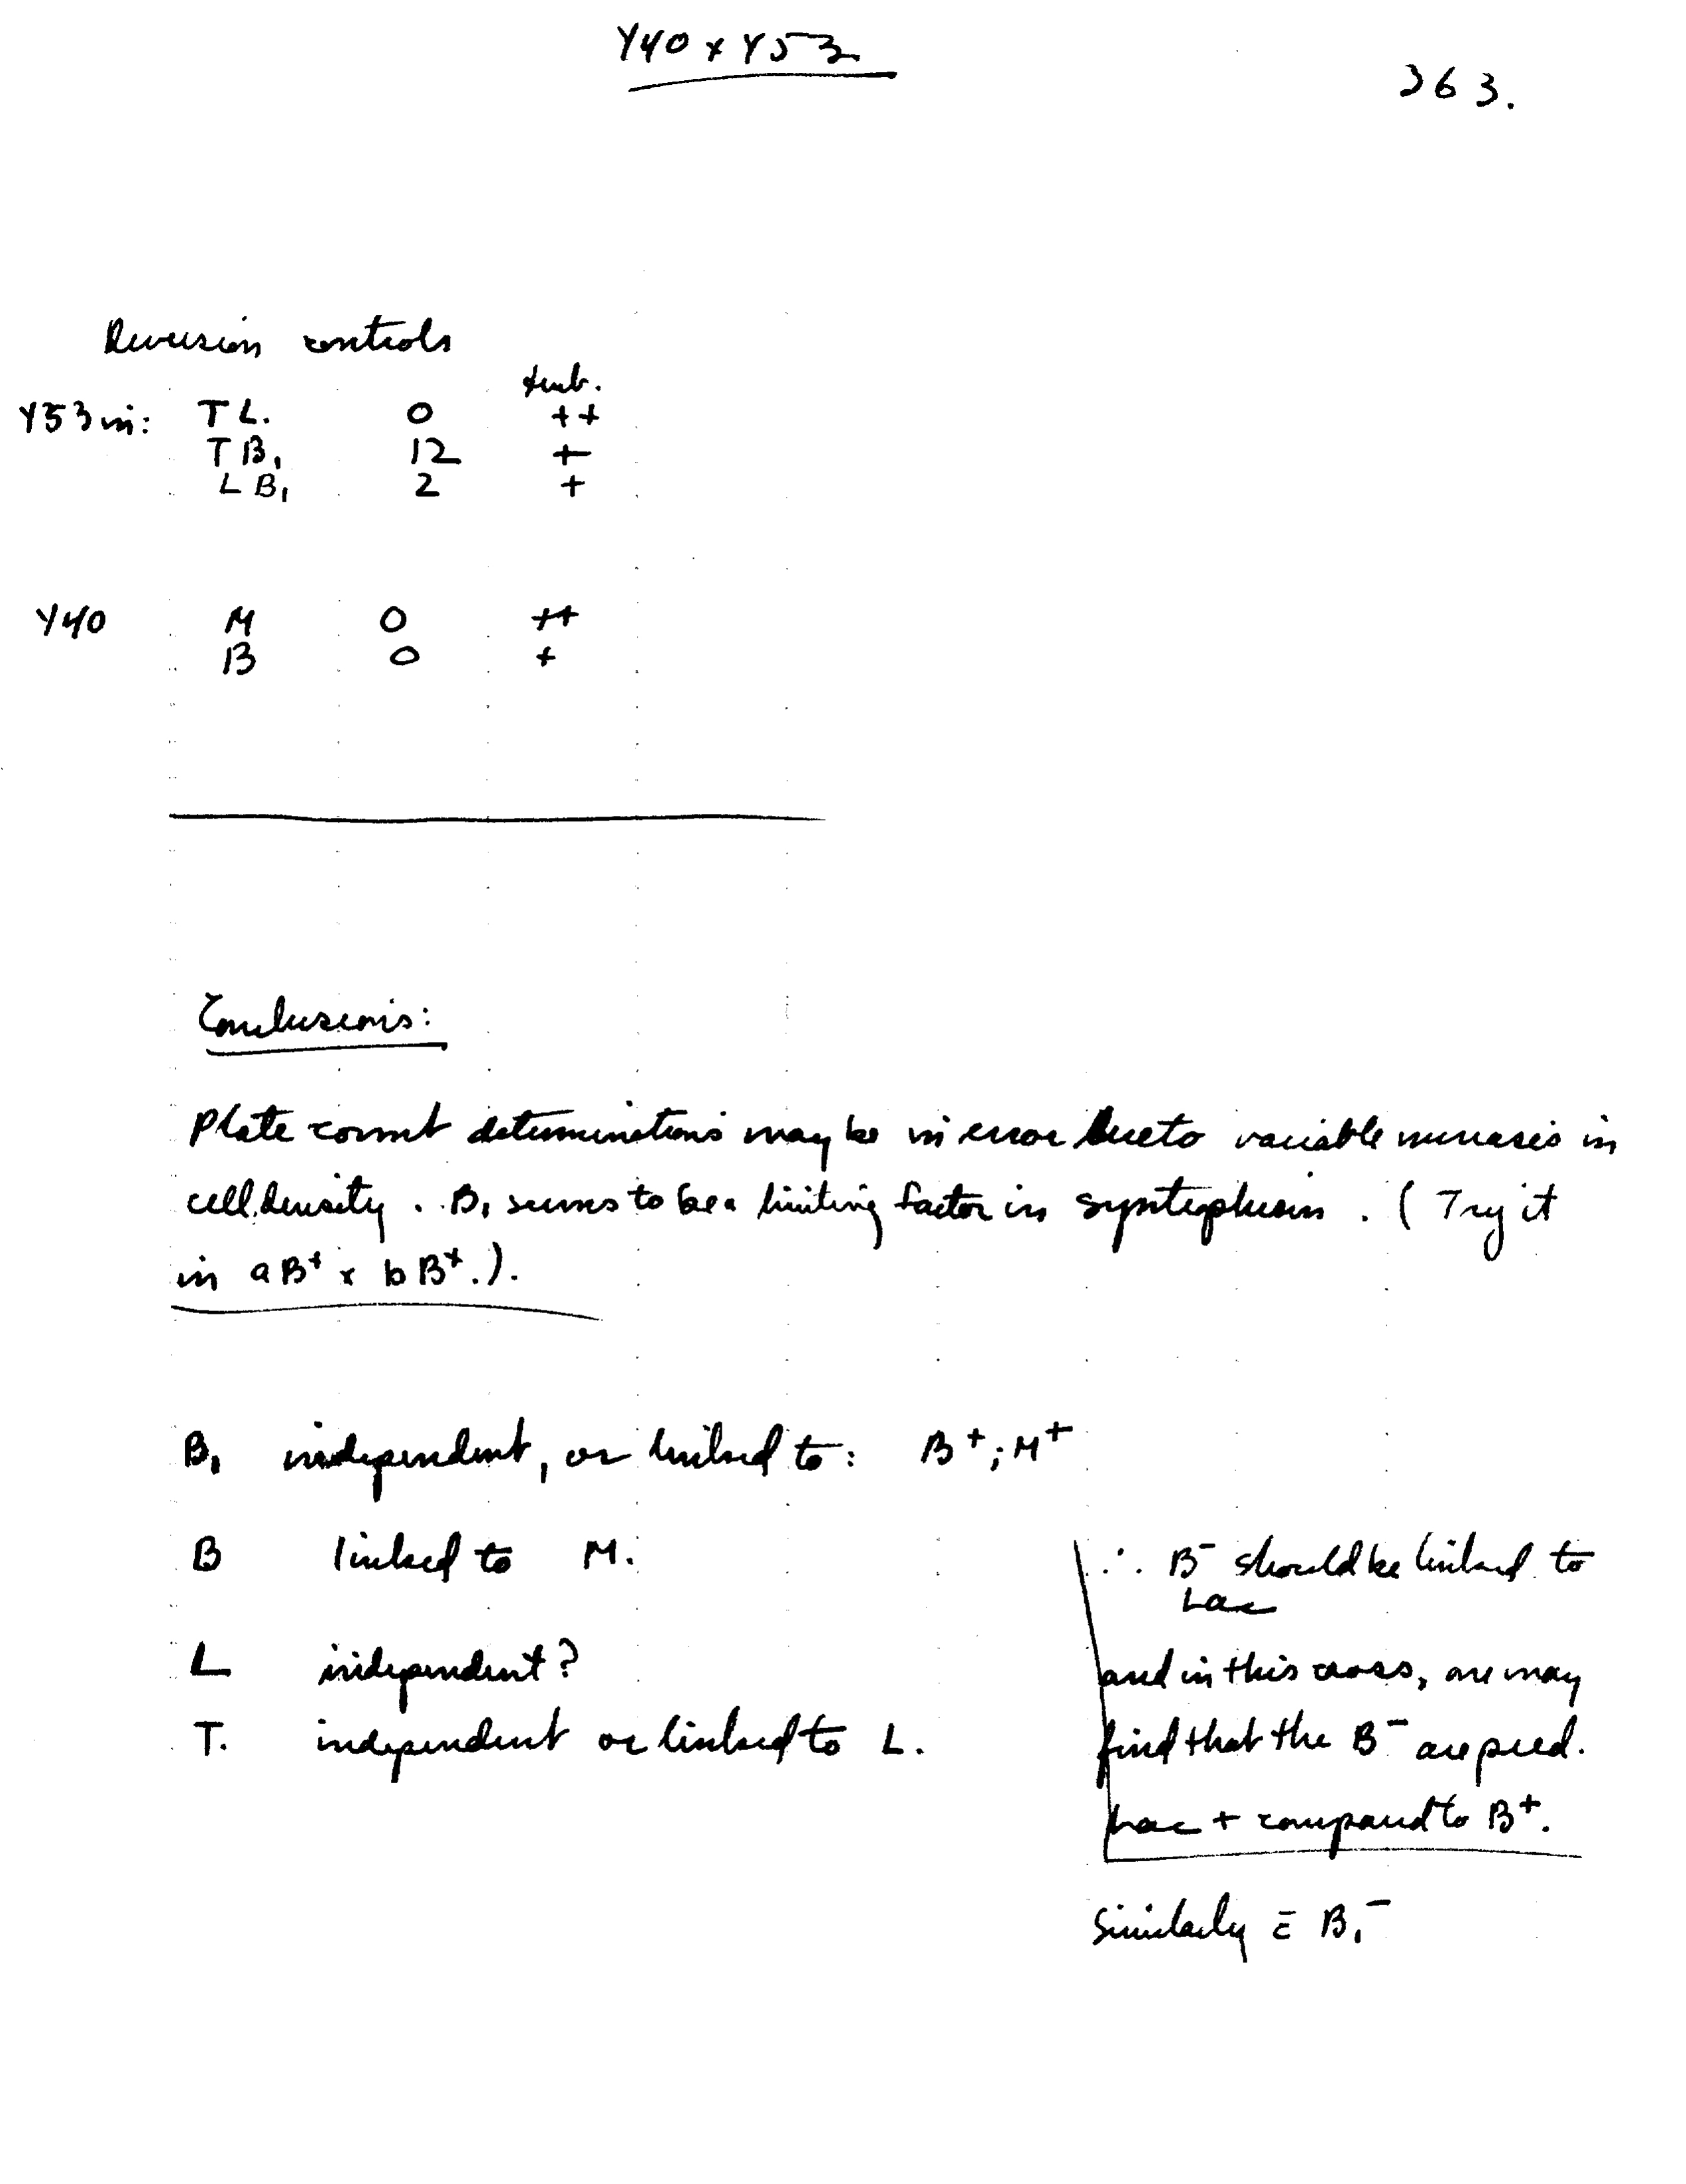 Y40 x Y53
363.
Reversion controls
turb.
Y53 in: TL. 0 ++
TB₁ 12 +
LB₁ 2 +
Y40 M 0 ++
B 0 +
Conclusions:
Plate count determinations may be in error due to variable increases in
cell density. B₁ seems to be a limiting factor in syntrophism. (Try it
in aB⁺ x bB⁺.).
B₁ independent, or linked to: B⁺; M⁺
B linked to M.
L independent?
T. independent or linked to L.
∴ B⁻ should be linked to
Lac
and in this cross, one may
find that the B⁻ are pred.
Lac + compared to B⁺.
Similarly c̄ B₁⁻